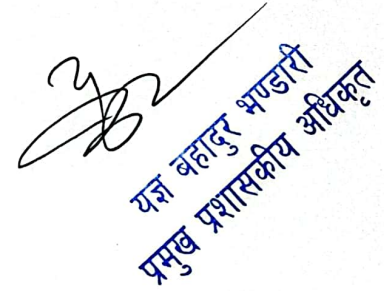 यज्ञ बहादुर भण्डारी
प्रमुख प्रशासकीय अधिकृत